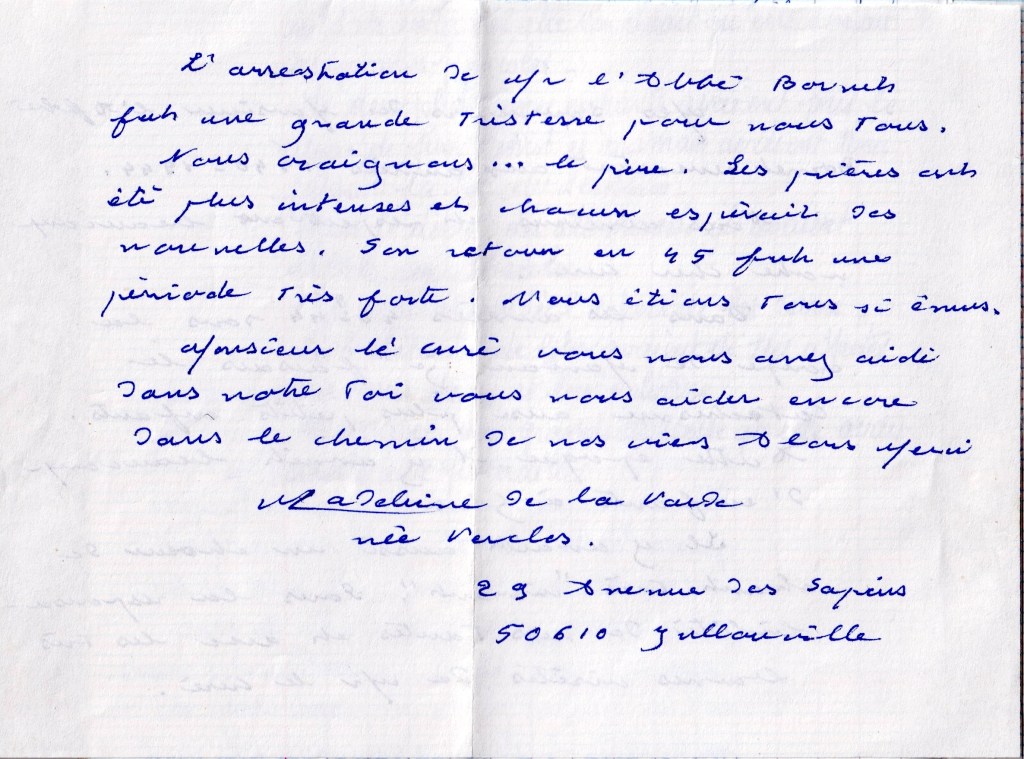 L'arrestation de Mr l'Abbé
fut une grande Tristesse pour nous Tous.
Nous craignons... le pire. Les prières ont
été plus intenses et chacun espérait des
nouvelles. Son retour en 45 fut une
période Très forte. Nous étions Tous si émus.
Monsieur le curé vous nous avez aidé
dans notre Foi vous nous aider encore
dans le chemin de nos vies Alors Merci
Madeleine de la
née
29 Avenue des Sapins
50610 Jullouville